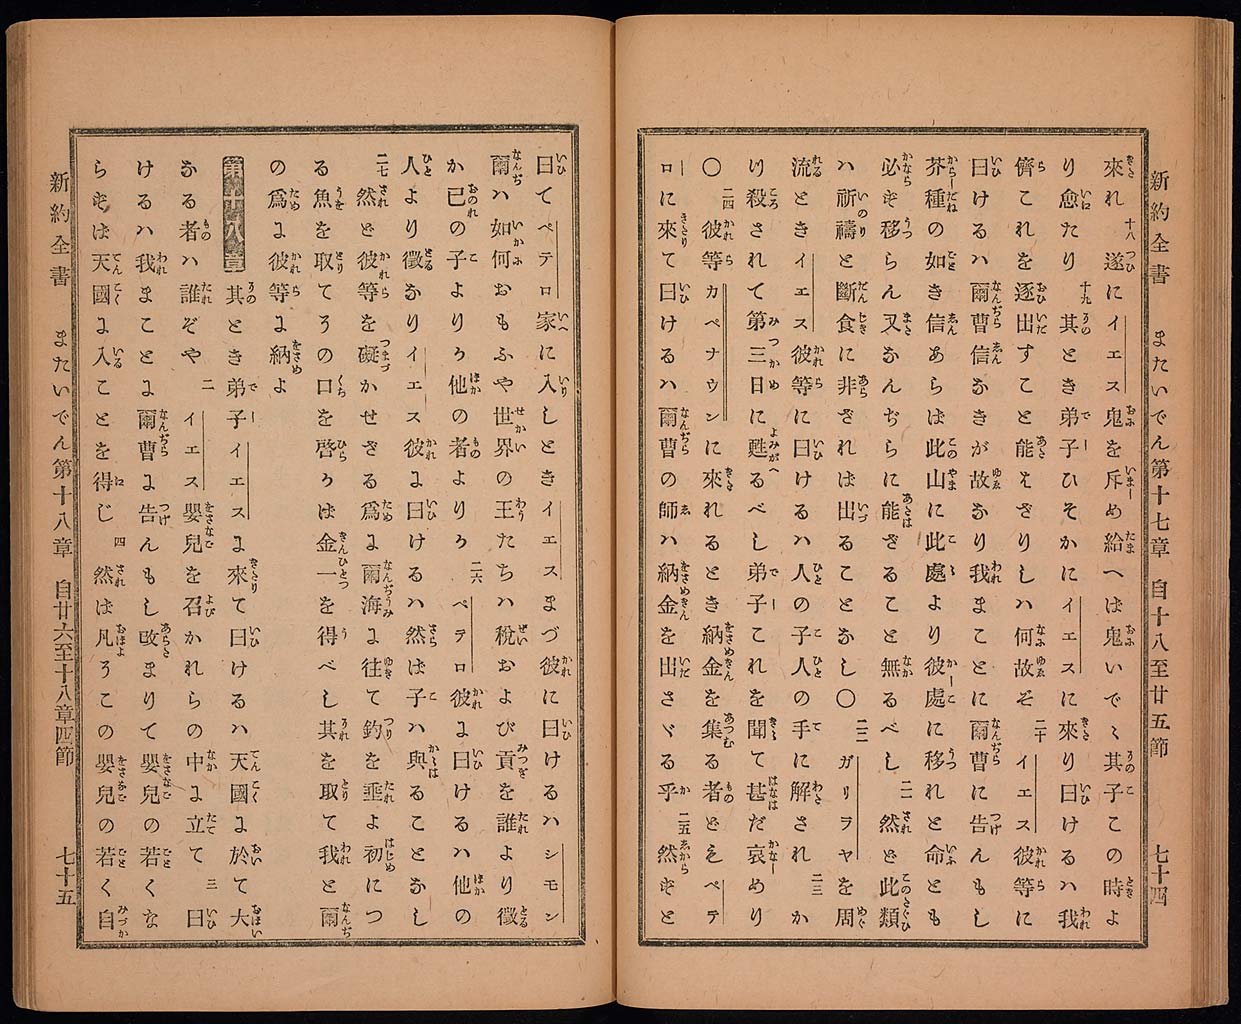 新約全書　またいでん第十七章　自十八至廿五節　七十四
來れ 十八 遂にイエス鬼を斥め給へは鬼いでゝ其子この時よ
り愈たり 十九 其とき弟子ひそかにイエスに來り曰けるハ我
儕これを逐出すこと能はざりしハ何故ぞ 二十 イエス彼等に
曰けるハ爾曹信なきが故なり我まことに爾曹に告んもし
芥種の如き信あらは此山に此處より彼處に移れと命とも
必ず移らん又なんぢらに能ざること無るべし 二一 然ど此類
ハ祈禱と斷食に非ざれは出ることなし〇 二二 ガリラヤを周
流ときイエス彼等に曰けるハ人の子人の手に解され 二三 か
つ殺されて第三日に甦るべし弟子これを聞て甚だ哀めり
〇 二四 彼等カペナウンに來れるとき納金を集る者どもペテ
ロに來て曰けるハ爾曹の師ハ納金を出さゞる乎 二五 然ずと
曰てペテロ家に入しときイエスまづ彼に曰けるハシモン
爾ハ如何おもふや世界の王たちハ税および貢を誰より徴
か己の子よりか他の者よりか 二六 ペテロ彼に曰けるハ他の
人より徴なりイエス彼に曰けるハ然は子ハ與ることなし
二七 然ど彼等を礙かせざる爲に爾海に往て釣を垂よ初につ
る魚を取てその口を啓かは金一を得べし其を取て我と爾
の爲に彼等に納よ
第十八章 其とき弟子イエスに來て曰けるハ天國に於て大
なる者ハ誰ぞや 二 イエス嬰兒を召かれらの中に立て 三 曰
けるハ我まことに爾曹に告んもし改まりて嬰兒の若くな
らずは天國に入ことを得じ 四 然は凡そこの嬰兒の若く自
新約全書　またいでん第十八章　自廿六至十八章四節　七十五